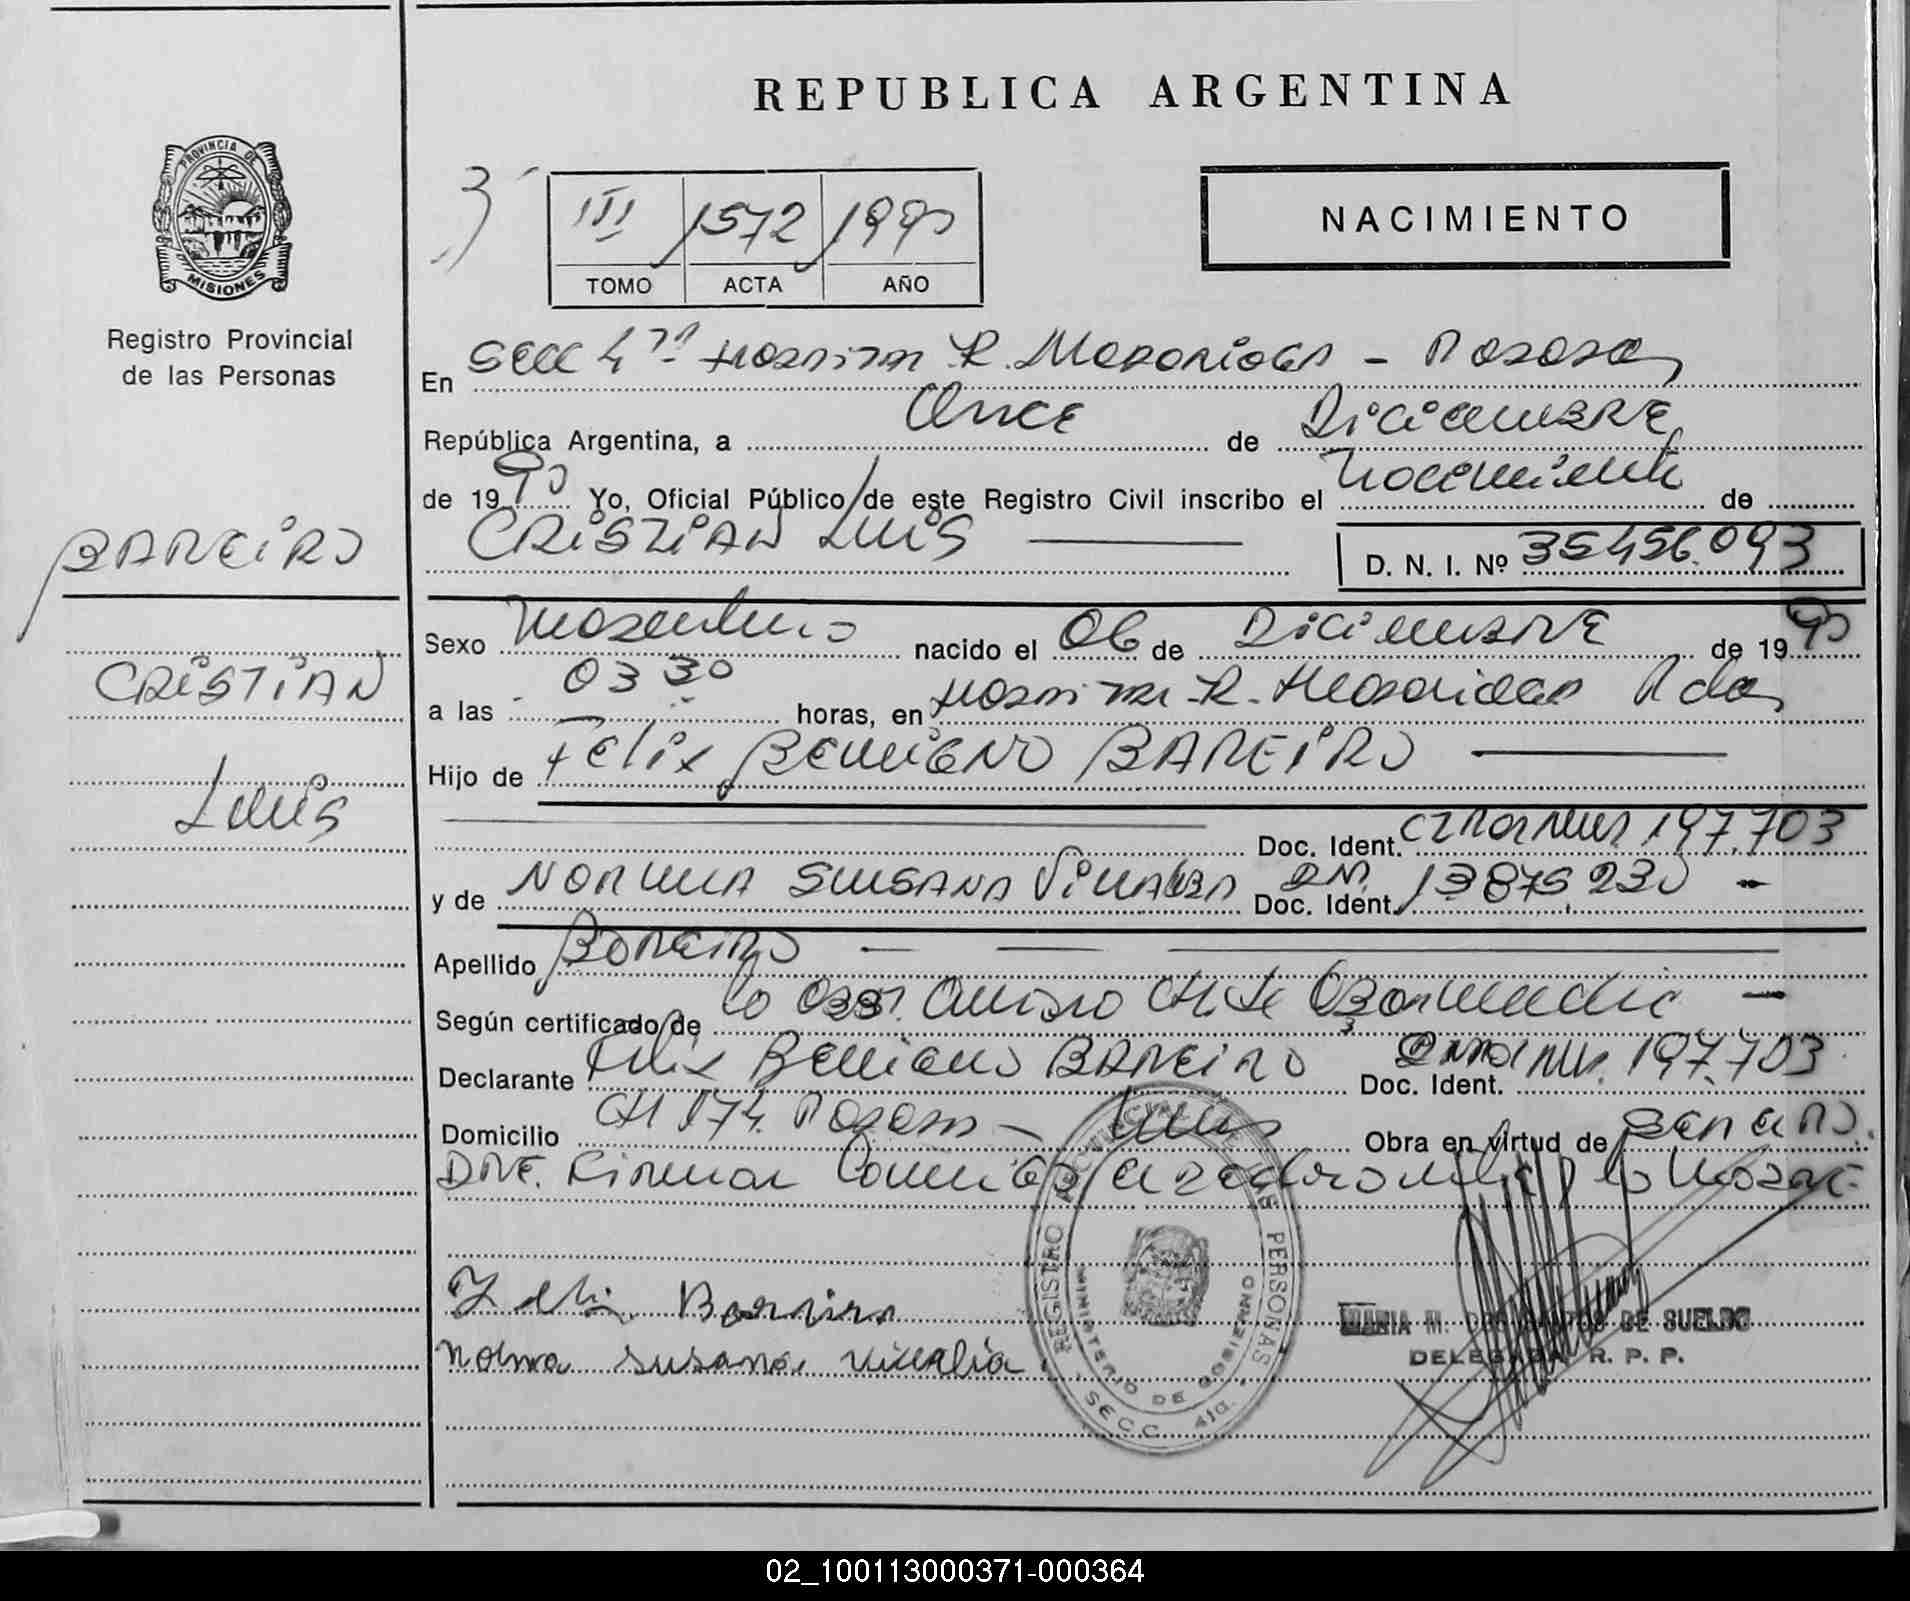 REPUBLICA ARGENTINA
PROVINCIA DE
MISIONES
Registro Provincial
de las Personas
3
III 1572 1990
TOMO ACTA AÑO
NACIMIENTO
En Secc 4ta Hospital R. Madariaga - Posadas
República Argentina, a Once de Diciembre
de 1990 Yo, Oficial Público de este Registro Civil inscribo el nacimiento de
CRISTIAN LUIS
D. N. I. Nº 35456.093
BAREIRO
CRISTIAN
Luis
Sexo Masculino nacido el 06 de Diciembre de 1990
a las 03 30 horas, en Hospital R. Madariaga Pdas
Hijo de Felix BENIGNO BAREIRO
Doc. Ident. 197.703
y de NORMA SUSANA Villalba Doc. Ident. 13875230
Apellido Bareiro
Según certificado de la
Declarante Felix Benigno BAREIRO Doc. Ident. 197.703
Domicilio CH 174 Posadas Obra en virtud de
DRE. Firman
Felix Bareiro
Norma Susana Villalba
REGISTRO PROVINCIAL DE LAS PERSONAS
MINISTERIO DE GOBIERNO
SECC. 4ta.
MARIA M. DOS SANTOS DE SUELDO
DELEGADA R. P. P.
02_100113000371-000364